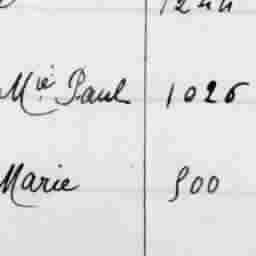 1244
Mie Paul 1026
Marie 500